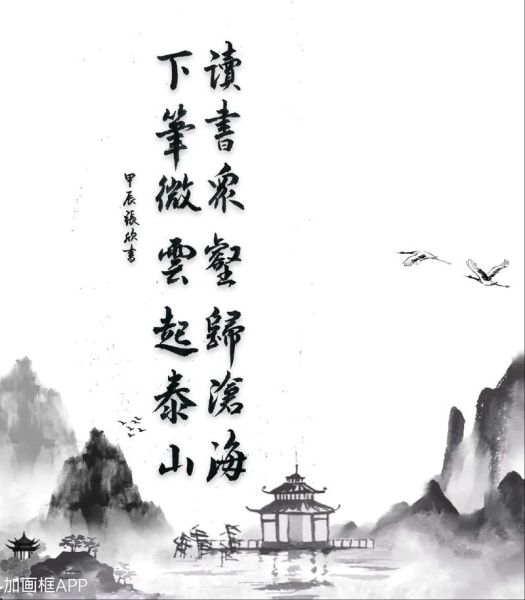 讀書眾壑歸滄海
下筆微雲起泰山
甲辰張欣書
加画框APP